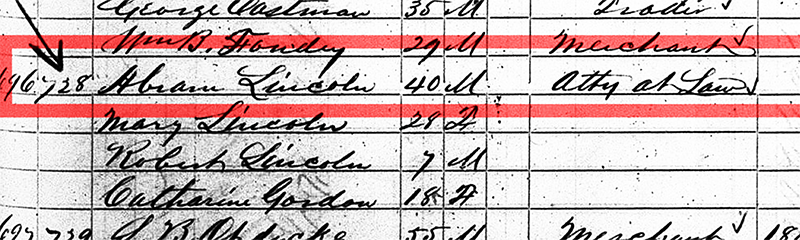 George Eastman 35 M Trader
Wm B. Fondey 29 M Merchant
696 728 Abram Lincoln 40 M Atty at Law
Mary Lincoln 28 F
Robert Lincoln 7 M
Catharine Gordon 18 F
697 729 B. Opdycke 55 M Merchant 18